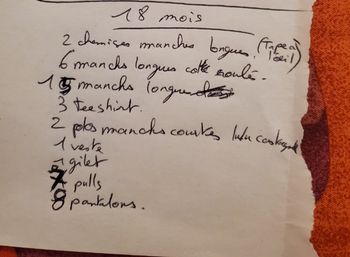 18 mois
2 chemises manches longues. (Tape à l'oeil)
6 manches longues col roulé.
15 manches longues
3 teeshirt.
2 polos manches courtes lulu castagnette
1 veste
1 gilet
7 pulls
8 pantalons.